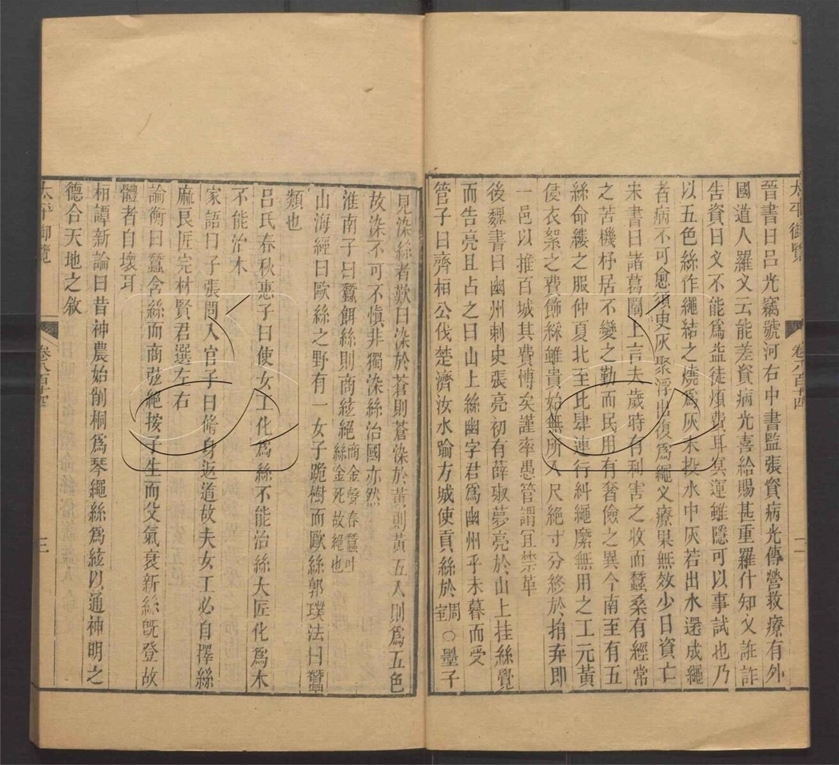 晉書曰呂光竊號河右中書監張資病光傳營救療有外
國道人羅叉云能差資病光喜給賜甚重羅什知叉誑詐
告資曰叉不能為益徒煩費耳冥運雖隱可以事試也乃
以五色絲作繩結之燒為灰末投水中灰若出水還成繩
者病不可愈須臾灰聚浮出復為繩叉療果無效少日資亡
宋書曰諸葛闡上言夫歲時有利害之收而蠶桑有經常
之苦機杼居不變之勤而民用有奢儉之異今南至有五
絲命縷之服仲夏北至比肆連行糾繩縻無用之工元黃
侵衣絮之費飾綵雖貴始無所入尺絕寸分終於捐棄即
一邑以推百城其費博矣謹率愚管謂宜禁革
後魏書曰幽州刺史張亮初有薛淑夢亮於山上挂絲覺
而告亮且占之曰山上絲幽字君為幽州乎未暮而受
管子曰齊桓公伐楚濟汝水踰方城使貢絲於周室○墨子
太平御覽 卷八百十四 二
見染絲者歎曰染於蒼則蒼染於黃則黃五入則為五色
故染不可不慎非獨染絲治國亦然
淮南子曰蠶餌絲則商絃絕商金聲春蠶吐絲金死故絕也
山海經曰歐絲之野有一女子跪樹而歐絲郭璞法曰蠶
類也
呂氏春秋惠子曰使女工化為絲不能治絲大匠化為木
不能治木
家語曰子張問入官子曰脩身返道故夫女工必自擇絲
麻良匠完材賢君選左右
論衡曰蠶含絲而商弦絕按子生而父氣衰新絲既登故
體者自壞耳
桓譚新論曰昔神農始削桐為琴繩絲為絃以通神明之
德合天地之敘
太平御覽 卷八百十四 三